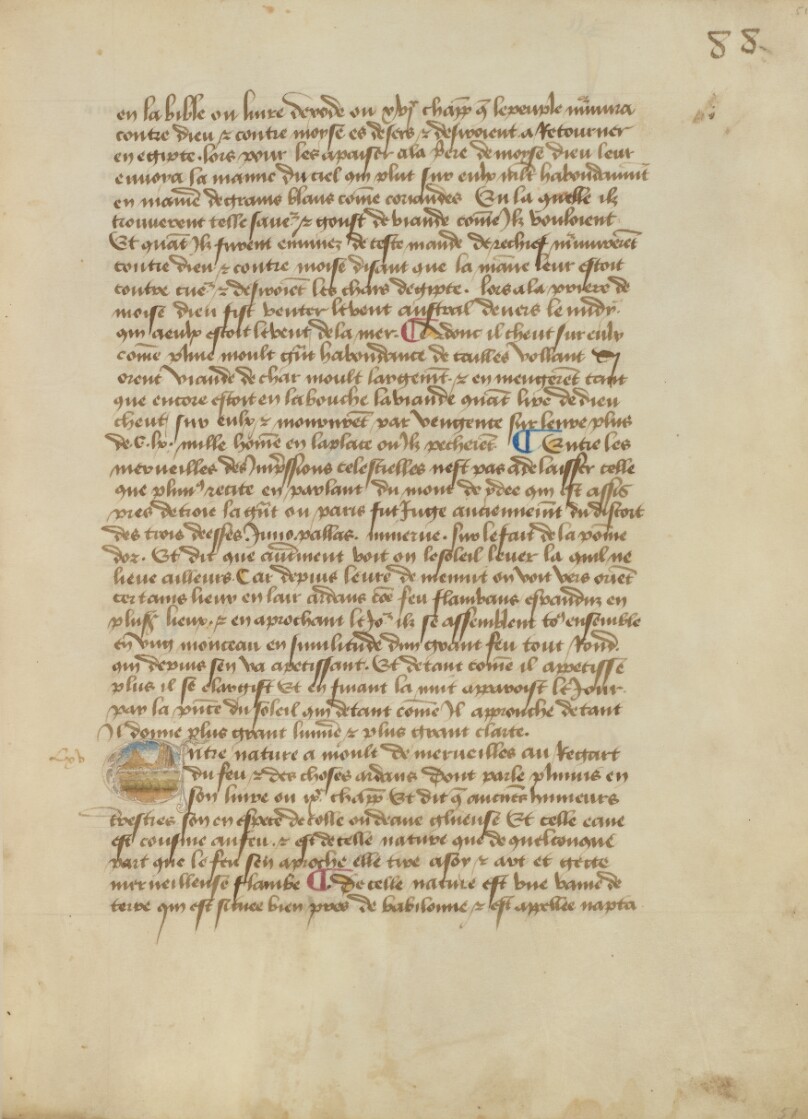 88.
en la bible ou livre dexode ou xvjᵉ chapp̄ q̄ le peuple m̄mura
contre dieu ⁊ contre moyse es desers ⁊ desiroient a Retourner
en egipte. lors pour les apaiser a la p̄ere de moyse dieu leur
envoya la manne du ciel qui plut sur eulx habondanmt̄
en manie᷑ de grains blans com̄e coriandes En la quelle ilz
trouverent telle save᷑ ⁊ goust de viande com̄e Ilz vouloient
Et quāt Ilz furent ennuiez de ceste viande de rechief m̄murerēt
contre dieu ⁊ contre moise disant que la māne leur estoit
contre cue᷑ ⁊ desiroiēt les chars degipte. lors a la priere de
moise dieu fist venter le vent austral devers le midy.
qui a eulx estoit le vent de la mer. ¶ donc il cheut sur eulx
com̄e pluie moult gn̄t habondance de cailles vollant
orent viande de char moult largemt̄. ⁊ en mengerēt tant
que encore estoit en la bouche la viande quāt lire de dieu
cheut sur eulx ⁊ moururēt par vengence sur leure plus
de. C. lx. mille hom̄e en la place ou Ilz pecherēt ¶ Entre les
merveilles des Imp̄ssions celestielles nest pas a delaisser celle
que plini᷑ recite en parlant du mont de qui est assis
pres de troie la gn̄t ou paris fut Juge anciennemt̄ du discort
des trois deesses. Juno. pallas. minerve. sur le fait de la pom̄e
dor. Et dit que autrement voit on le soleil lever la quil ne
lieve ailleurs. Car depuis leure de mienuit on voit vers oriēt
certains lieux en lair ardans cōe feu flambans espanduz en
plus᷑s lieux. ⁊ en aprochant le Jo᷑ ilz se assemblent to᷑ ensemble
en ung monceau en similitude dun grant feu tout Rond.
qui depuis sen va apetissant. Et de tant com̄e il appetisse
plus il se elargist Et en finant la nuit apparoist le Jour.
par la p̄nce du soleil qui de tant com̄e Il aprouche de tant
Il donne plus grant lumie᷑ ⁊ plus grant clarte.
lxv Entre nature a moult de merveilles au Regart
du feu ⁊ des choses ardans Dont parle plinius en
son livre ou ixᵉ chapp̄ Et dit q̄ aucunes humeurs
terestries son en espece de colle ou deaue glueuse Et celle eaue
est cousine au feu. ⁊ est de celle nature que de quelconque
part que le feu sen aproche elle tire a soy ⁊ art et gecte
merveilleuse flambe ¶ De celle nature est une vaine de
terre qui est situee bien pres de babilonne ⁊ est appellee napta